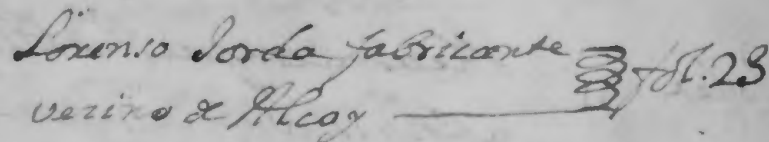 Lorenso Jorda fabricante
vezino de Alcoy fol. 23